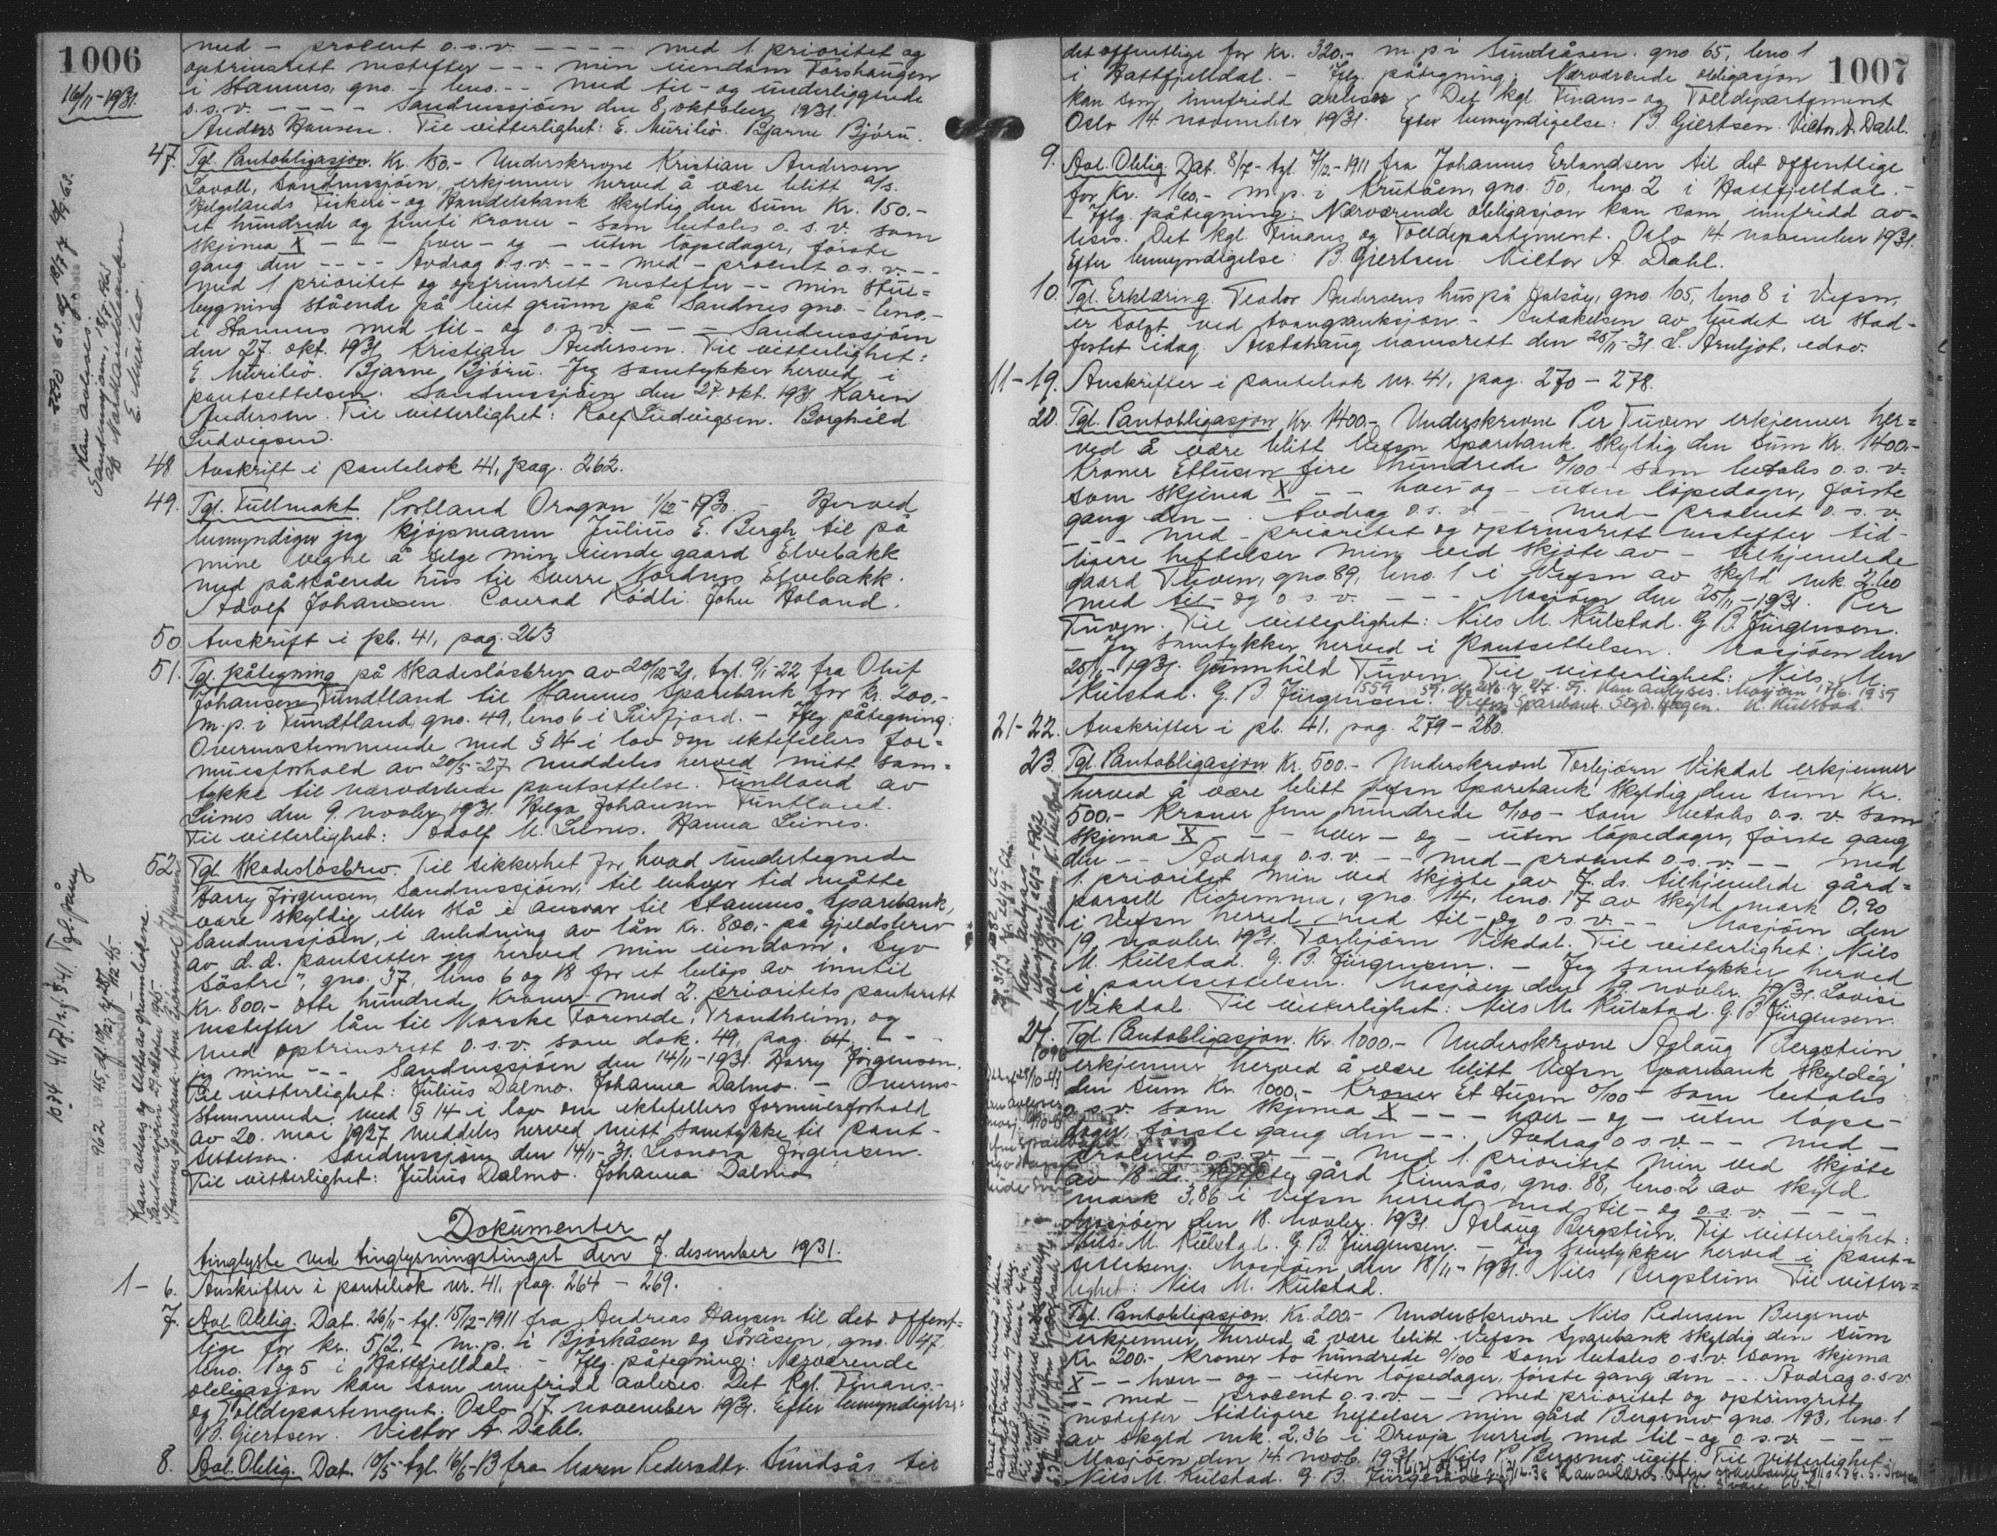 1006
16/11-1931.
med - procent o.s.v. - - - - med 1 prioritet og
optrinsrett nestefter - - - min eiendom Torshaugen
i Stamnes, gno. - bno. - - med til- og underliggende
o.s.v. - - - - Sandnessjøen den 8. oktober 1931.
Anders Hansen. Til vitterlighet: E. Murilø. Bjarne Bjøru.
47. Tgl. Pantobligasjon. Kr. 150.- Underskrevne Kristian Andersen
Lovoll, Sandnessjøen, erkjenner herved å være blitt A/S.
Helgelands Fiskeri- og Handelsbank skyldig den sum Kr. 150.-
et hundrede og femti kroner - som betales o.s.v. som
skjema X - - - hver - og - uten løpedager, første
gang den - - - - Avdrag o.s.v. - - - med - procent o.s.v. - -
med 1 prioritet og optrinsrett nestefter - - min stue=
bygning stående på leiet grunn på Sandnes gno. - bno. -
i Stamnes med til- og o.s.v. - - - - Sandnessjøen
den 27. okt. 1931 Kristian Andersen. Til vitterlighet:
E. Murilø. Bjarne Bjøru. Jeg samtykker herved i
pantsettelsen. Sandnessjøen den 27. okt. 1931 Karin
Andersen. Til vitterlighet: Rolf Ludvigsen. Borghild
Ludvigsen.
48. Avskrift i pantebok 41, pag. 262.
49. Tgl. Fullmakt. Portland Oregon 1/12-1930. - Herved
bemyndiger jeg kjøpmann Julius E. Bergh til på
mine vegne å selge min eiende gaard Elvebakk
med påstående hus til Sverre Nordnes Elvebakk.
Adolf Johansen. Conrad Rødli. John Holand.
50. Avskrift i pb. 41, pag. 263
51. Tgl. påtegning på skadesløsbrev av 20/12-21, tgl. 9/1-22 fra Oluf
Johansen Tuntland til Stamnes Sparebank for kr. 200.-
m.p. i Tuntland, gno. 49, bno 6 i Leirfjord. - Iflg påtegning:
Overensstemmende med § 14 i lov om ektefellers for=
muesforhold av 20/5-27 meddeles herved mitt sam=
tykke til nærværende pantsettelse. Tuntland av
Leines den 9. novbr. 1931. Helga Johansen Tuntland.
Til vitterlighet: Adolf M. Leines. Hanna Leines.
52. Tgl. Skadesløsbrev. Til sikkerhet for hvad undertegnede
Harry Jørgensen, Sandnessjøen, til enhver tid måtte
være skyldig eller stå i ansvar til Stamnes Sparebank,
Sandnessjøen, i anledning av lån Kr. 800,- på gjeldsbrev
av d.d. pantsetter jeg herved min eiendom "Syv
Søstre", gno. 37, bno 6 og 18 for et beløp av inntil
Kr. 800,- otte hundrede kroner - med 2. prioritets panterett
nestefter lån til Norske Forenede, Trondheim, og
med optrinsrett o.s.v. som dok. 49, pag. 64, - - -
jeg mine - - - Sandnessjøen den 14/11-1931. Harry Jørgensen.
Til vitterlighet: Julius Dalmo. Johanna Dalmo. - Overens-
stemmende med § 14 i lov om ektefellers formuesforhold
av 20. mai 1927 meddeles herved mitt samtykke til pant-
settelsen. Sandnessjøen den 14/11-31. Leonora Jørgensen.
Til vitterlighet: Julius Dalmo. Johanna Dalmo
Dokumenter
tinglyste ved tinglysningstinget den 7. desember 1931.
1-6. Avskrifter i pantebok nr. 41, pag. 264 - 269.
7. Avl. Oblig. Dat. 26/11- tgl. 15/12-1911 fra Andreas Hansen til det offent-
lige for kr. 512.- m.p. i Bjørkåsen og Søråsen, gno. 47,
bno. 1 og 5 i Hattfjelldal. - Iflg. påtegning: Nærværende
obligasjon kan som innfridd avleses. Det kgl. Finans-
og Tolldepartement. Oslo 17. november 1931. Efter bemyndigelse:
B. Giertsen. Victor A. Dahl.
8. Avl. Oblig. Dat. 10/5- tgl. 16/6-13 fra Maren Pedersdtr. Sundsås til
Kan avleses.
E. Murilø.
1007
det offentlige for Kr. 320.- m.p. i Sundsåsen. gno 65, bno. 1
i Hattfjelldal. - Iflg. påtegning: Nærværende obligasjon
kan som innfridd avleses. Det kgl. Finans- og Tolldepartement
Oslo 14. november 1931. Efter bemyndigelse: B. Giertsen. Victor A. Dahl.
9. Avl. Oblig. Dat. 8/7- tgl. 7/12-1911 fra Johannes Erlandsen til det offentlige
for Kr. 160.- m.p. i Krutåen, gno. 50, bno. 2 i Hattfjelldal. -
- Iflg. påtegning: Nærværende obligasjon kan som innfridd av-
leses. Det kgl. Finans og Tolldepartement. Oslo 14. november 1931.
Efter bemyndigelse: B. Giertsen. Victor A. Dahl.
10. Tgl. Erklæring. Teodor Andersens hus på Halsøy, gno. 105, bno 8 i Vefsn,
er solgt ved tvangsauksjon. - Antakelsen av budet er stad-
festet idag. Alstahaug namsrett den 25/11-31. L. Arnljot, edsv.
11-19. Avskrifter i pantebok nr. 41, pag. 270 - 278.
20. Tgl. Pantobligasjon. Kr. 1400.- Underskrevne Per Tuven erkjenner her-
ved å være blitt Vefsn Sparebank skyldig den sum Kr. 1400.-
Kroner Ettusen fire hundrede 0/100 - som betales o.s.v.
som skjema X - - - hver og - uten løpedager, første
gang den - . Avdrag o.s.v. - - med - procent o.s.v.
- - - med - prioritet og optrinsrett nestefter tid-
ligere heftelser min ved skjøte av - tilhjemlede
gaard Tuven, gno. 89, bno. 1 i Vefsn av skyld mk. 2.60
med til- og o.s.v. - - - - Mosjøen den 25/11-1931. Per
Tuven. Til vitterlighet: Nils M. Kulstad. G. B. Jürgensen.
- Jeg samtykker herved i pantsettelsen. Mosjøen den
25/11-1931. Gunnhild Tuven. Til vitterlighet: Nils M.
Kulstad. G. B. Jürgensen.
Kan avlyses. Mosjøen 17/6. 1959
Vefsn Sparebank.
21-22. Avskrifter i pb. 41, pag. 279 - 280.
23. Tgl. Pantobligasjon. Kr. 500.- Underskrevne Torbjørn Vikdal erkjenner
herved å være blitt Vefsn Sparebank skyldig den sum Kr.
500.- Kroner fem hundrede 0/100 - som betales o.s.v. som
skjema X - - - hver - og - uten løpedager, første gang
den - - Avdrag o.s.v. - - med - procent o.s.v. - - med
1. prioritet min ved skjøte av 7. ds. tilhjemlede gård=
parsell Kistemma, gno. 14, bno. 17 av skyld mark 0,90
i Vefsn herred med til- og o.s.v. - - - Mosjøen den
19. novbr. 1931. Torbjørn Vikdal. Til vitterlighet: Nils
M. Kulstad. G. B. Jürgensen. - Jeg samtykker herved
i pantsettelsen. Mosjøen den 19. novbr. 1931. Lovise
Vikdal. Til vitterlighet: Nils M. Kulstad. G. B. Jürgensen.
24. Tgl. Pantobligasjon. Kr. 1000.- Underskrevne Aslaug Bergstein
erkjenner herved å være blitt Vefsn Sparebank skyldig
den sum Kr. 1000,- Kroner Et tusen 0/100 - som betales
o.s.v. som skjema X - - - hver - og - uten løpe-
dager, første gang den - - . Avdrag o.s.v. - - med -
procent o.s.v. - - - med 1. prioritet min ved skjøte
av 18 ds. gård Kimsås, gno. 88, bno. 2 av skyld
mark 3,86 i Vefsn herred med til- og o.s.v. - - - -
Mosjøen den 18. novbr. 1931. Aslaug Bergstein. Til vitterlighet:
Nils M. Kulstad. G. B. Jürgensen. - Jeg samtykker herved i pant=
settelsen. Mosjøen den 18/11-1931. Nils Bergstein. Til vitter=
lighet: Nils M. Kulstad.
Tgl. Pantobligasjon. Kr. 200.- Underskrevne Nils Pedersen Bergsnev
erkjenner herved å være blitt Vefsn Sparebank skyldig den sum
Kr. 200.- kroner to hundrede 0/100 - som betales o.s.v. som skjema
X - - hver - og - uten løpedager, første gang den - - . Avdrag o.s.v.
- med - procent o.s.v. - - - med prioritet og optrinsrett
nestefter tidligere heftelser min gård Bergsnev gno. 193, bno. 1
av skyld mk. 2.36 i Drevja herred med til- og o.s.v. - - -
Mosjøen den 14. novb. 1931. Nils P. Bergsnev, ugift. Til vitterlighet:
Nils M. Kulstad. G. B. Jürgensen.